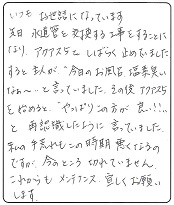 いつも お世話になっています
先日 水道管を交換する工事をすることに
なり、アクアス5を しばらく 止めていました
すると 主人が "今日のお風呂 塩素臭い
なぁ〜" と言っていました。その後 アクアス5
を始めると、"やっぱり この方が 良い!!"
と 再認識したように 言っていました。
私の手荒れも この時期 悪くなるの
ですが、今のところ 切れていません。
これからも メンテナンス 宜しくお願い
します。